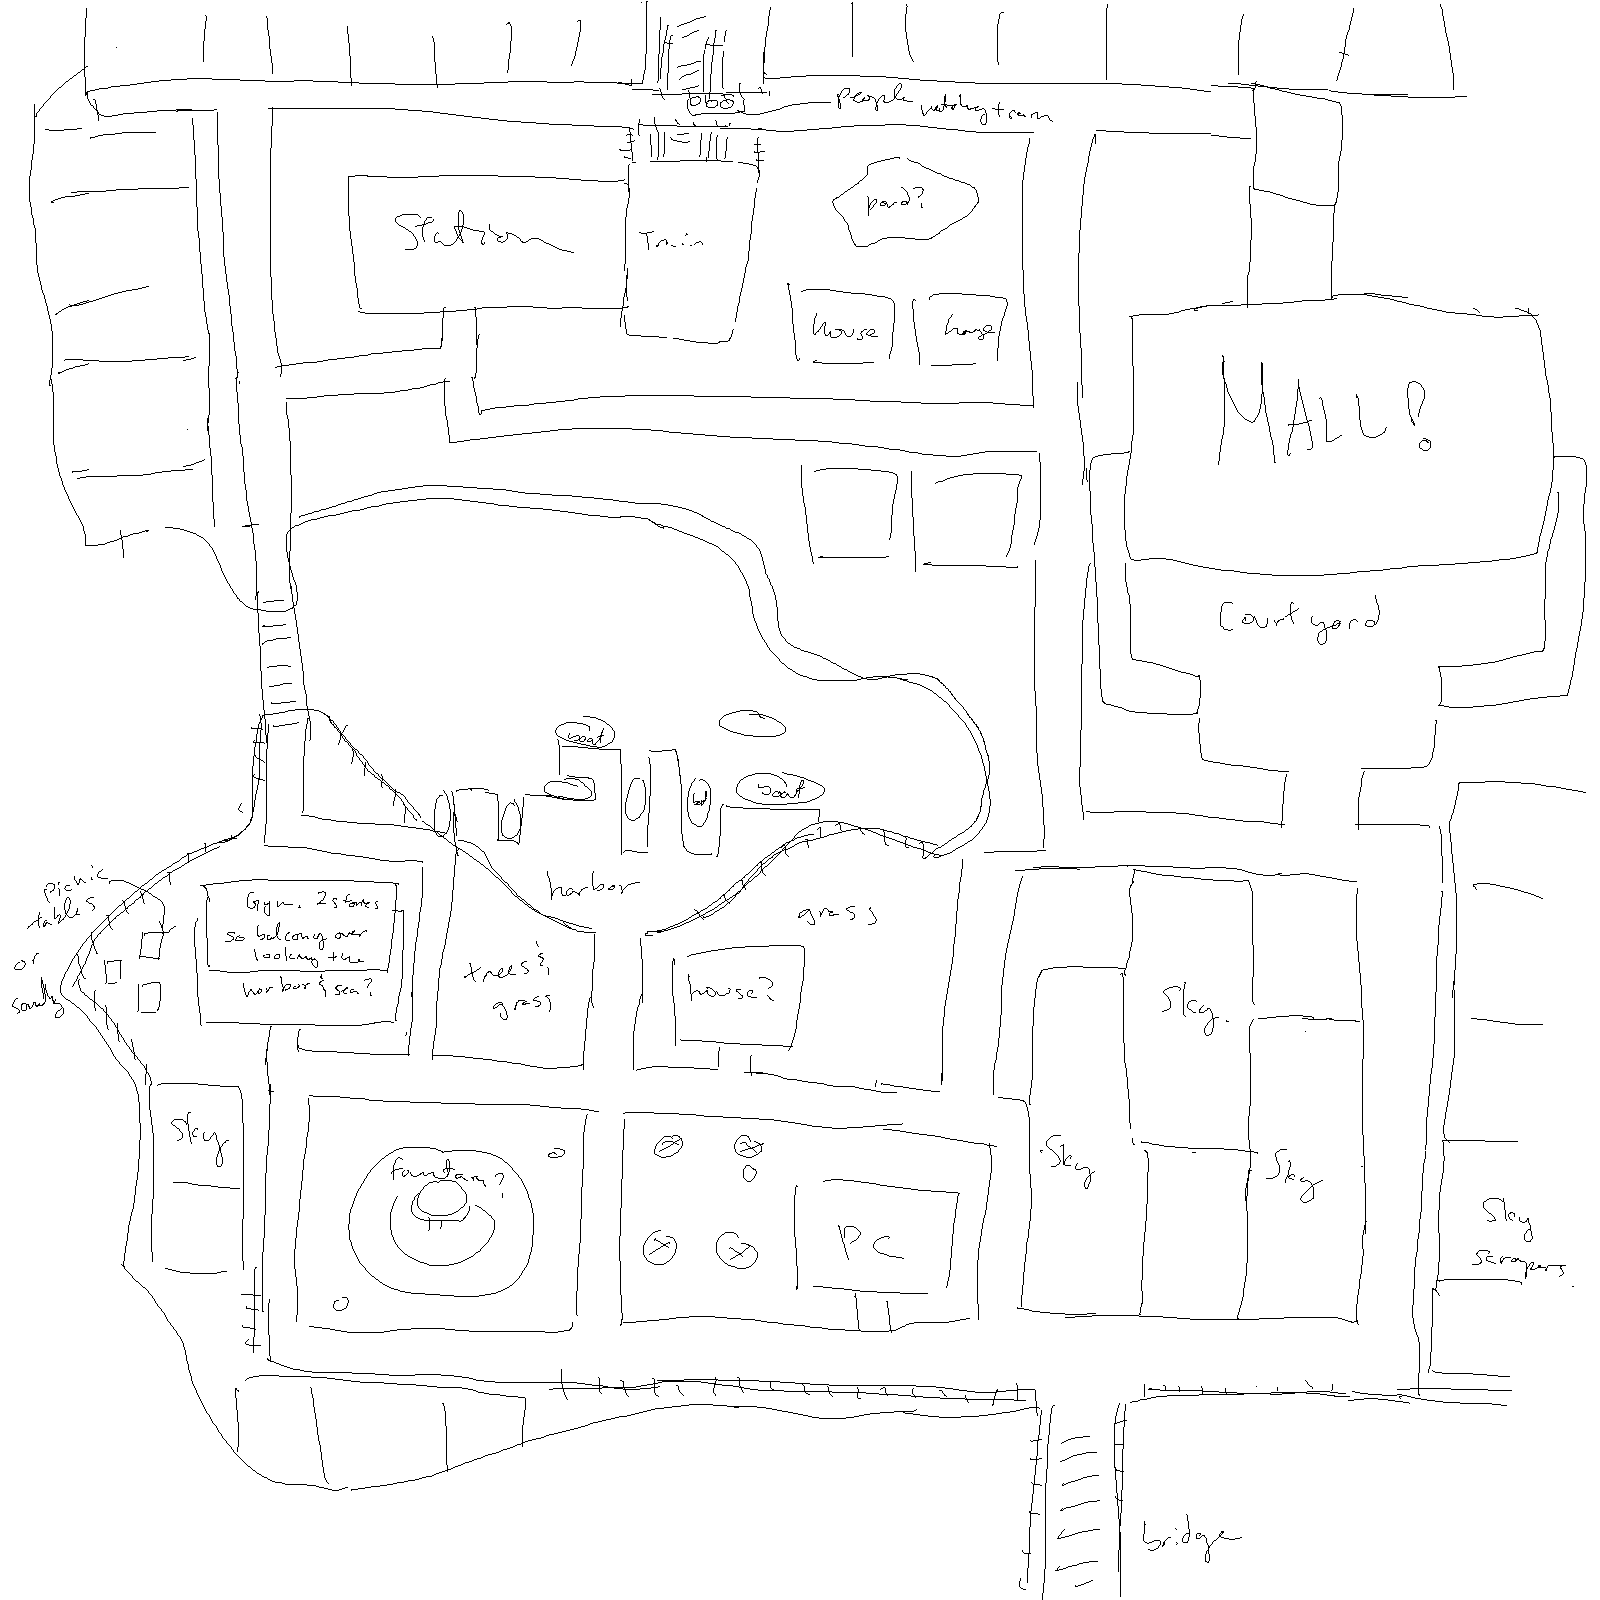 people watching train
Station
Train
pond?
house
house
MALL!
Courtyard
boat
boat
harbor
grass
Picnic
tables
or
sandy
Gym. 2 stories
so balcony over
looking the
harbor & sea?
trees &
grass
house?
Sky.
Sky
Sky
Sky
fountain?
PC
Sky
scrapers.
bridge